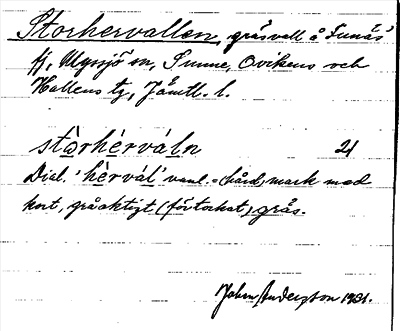 Storhervallen, gräsvall å Funäs
fj, Myssjö sn, Sunne, Ovikens och
Hallens tg, Jämtl. l.
stòrhérváln 21
Dial. 'hèrvál' vanl. = hård, mark med
kort, gråaktigt (förtorkat) gräs.
John Anderzson 1931.